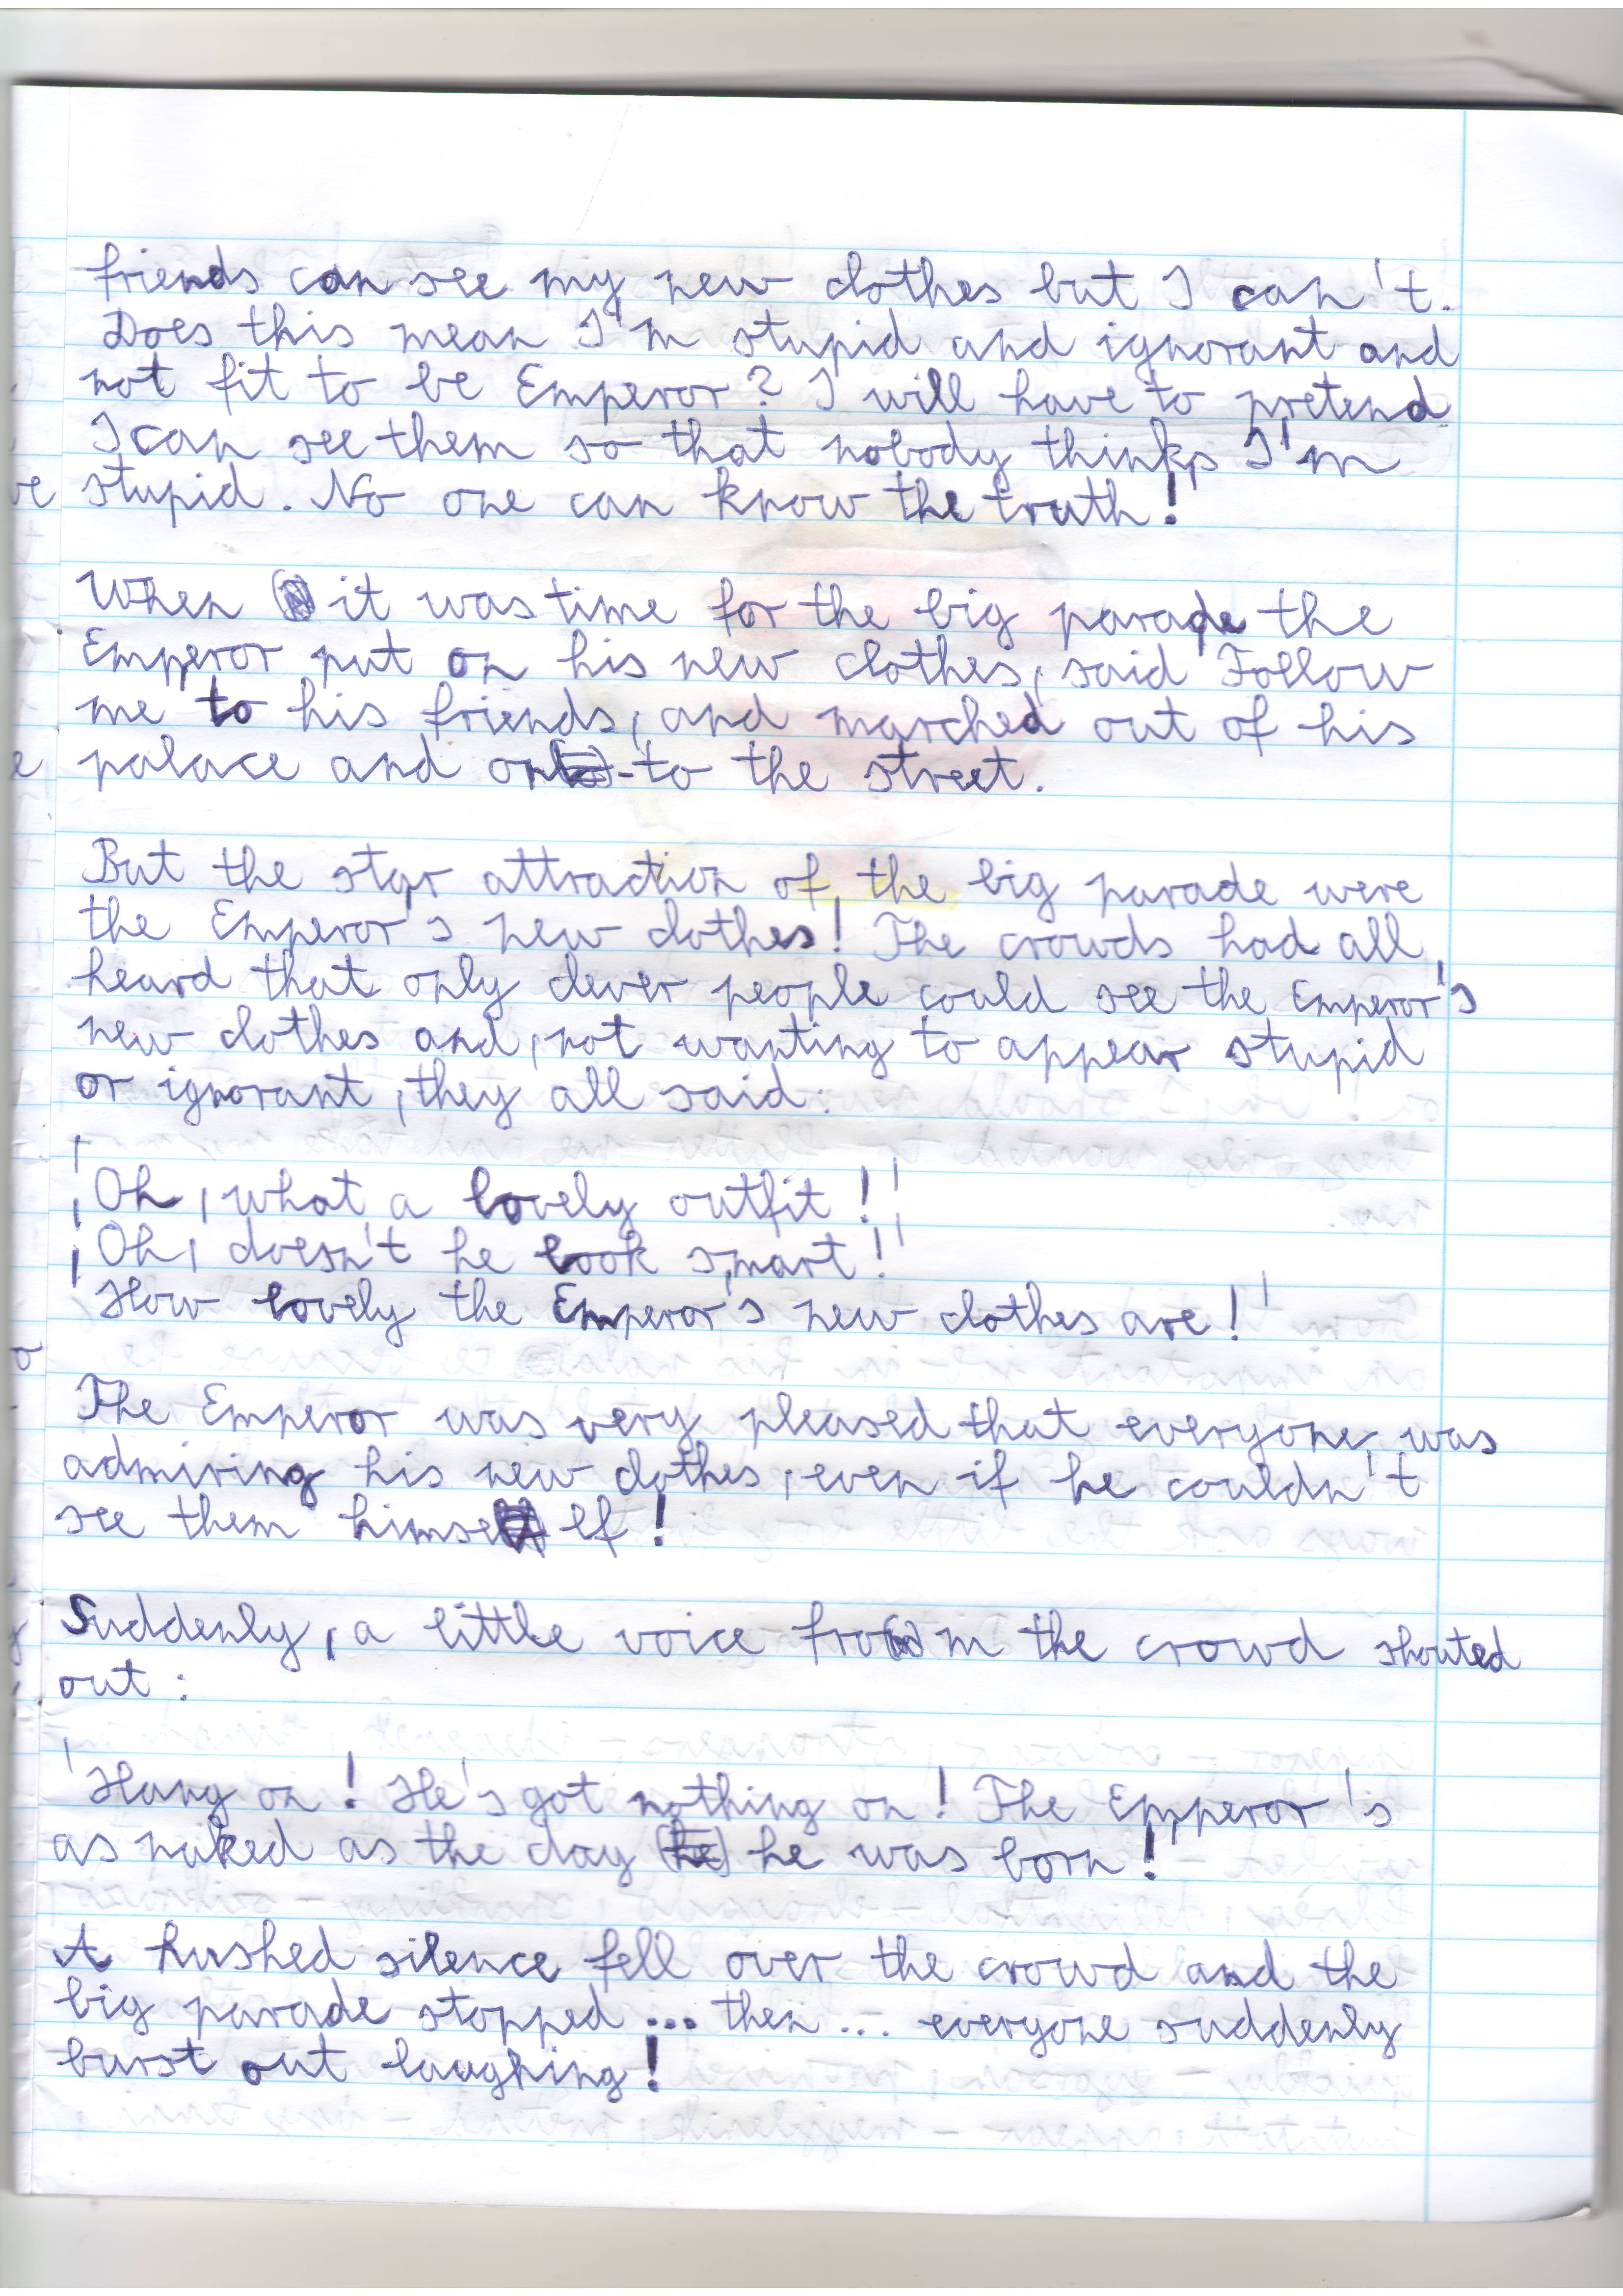 friends can see my new clothes but I can't.
Does this mean I'm stupid and ignorant and
not fit to be Emperor? I will have to pretend
I can see them so that nobody thinks I'm
stupid. No one can know the truth!
When it was time for the big parade the
Emperor put on his new clothes, said Follow
me to his friends, and marched out of his
palace and on-to the street.
But the star attraction of the big parade were
the Emperor's new clothes! The crowds had all
heard that only clever people could see the Emperor's
new clothes and, not wanting to appear stupid
or ignorant, they all said:
'Oh, what a lovely outfit!'
'Oh, doesn't he look smart!'
'How lovely the Emperor's new clothes are!'
The Emperor was very pleased that everyone was
admiring his new clothes, even if he couldn't
see them himself!
Suddenly, a little voice from the crowd shouted
out:
'Hang on! He's got nothing on! The Emperor's
as naked as the day he was born!
A hushed silence fell over the crowd and the
big parade stopped... then... everyone suddenly
burst out laughing!